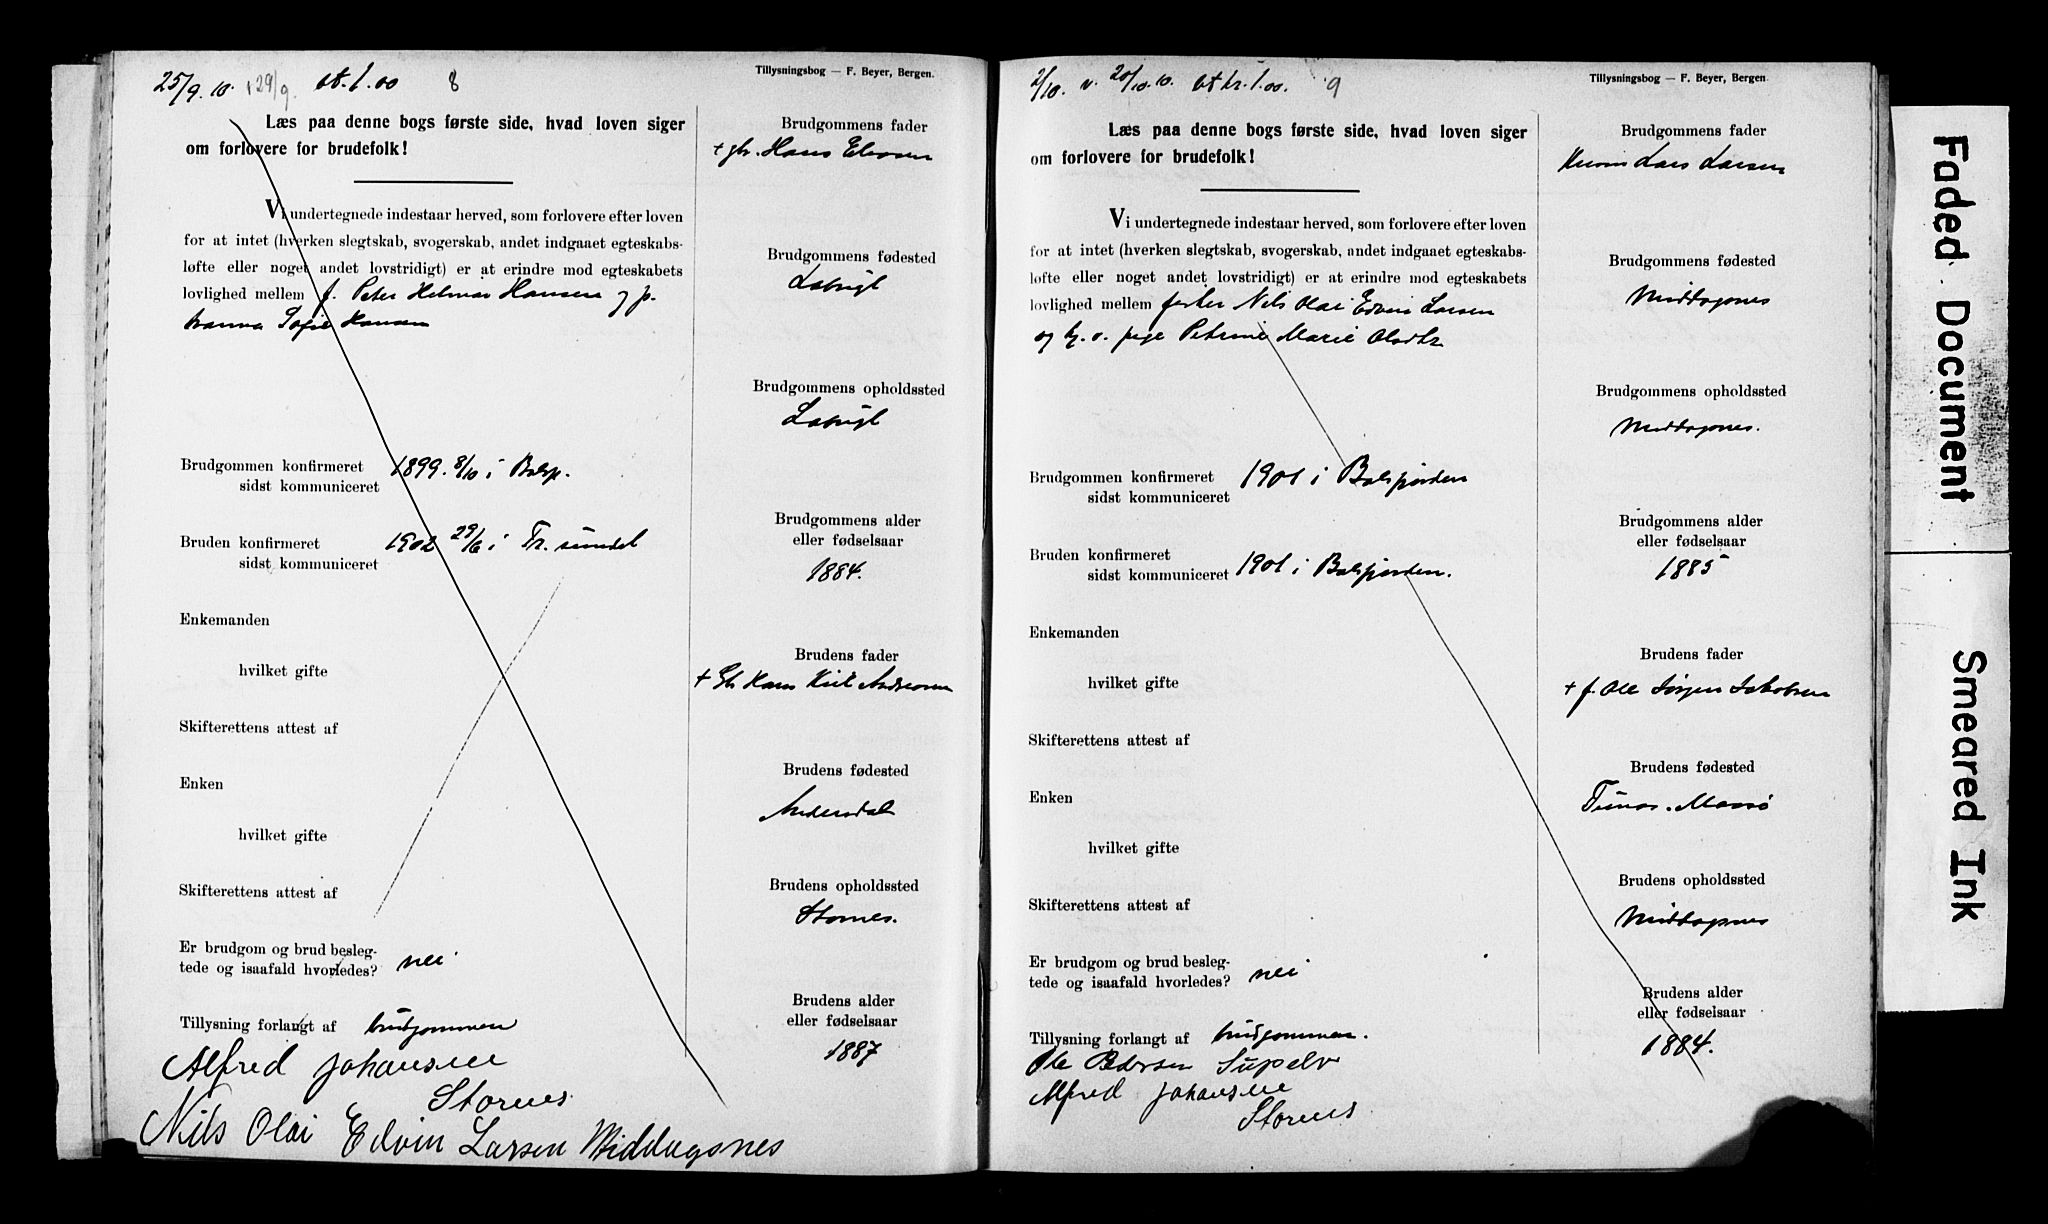 25/9.10. 29/9. at. 1.00 8
Tillysningsbog — F. Beyer, Bergen.
Læs paa denne bogs første side, hvad loven siger
om forlovere for brudefolk!
Vi undertegnede indestaar herved, som forlovere efter loven
for at intet (hverken slegtskab, svogerskab, andet indgaaet egteskabs-
løfte eller noget andet lovstridigt) er at erindre mod egteskabets
lovlighed mellem f. Peter Helmar Hansen og p.
Hanna Sofie Hansen
Brudgommen konfirmeret 1899. 8/10 i Balsf.
sidst kommuniceret
Bruden konfirmeret 1902 29/6 i Tr. sundet
sidst kommuniceret
Enkemanden
hvilket gifte
Skifterettens attest af
Enken
hvilket gifte
Skifterettens attest af
Er brudgom og brud besleg-
tede og isaafald hvorledes? nei
Tillysning forlangt af brudgommen
Alfred Johansen
Stornes
Nils Olai Edvin Larsen Middagsnes
Brudgommens fader
+ gbr. Hans
Brudgommens fødested
Brudgommens opholdssted
Brudgommens alder
eller fødselsaar
1884.
Brudens fader
+ Gbr Hans Andreasen
Brudens fødested
Andersdal
Brudens opholdssted
Stornes.
Brudens alder
eller fødselsaar
1887
2/10. v. 20/10.10. at kr. 1.00. 9
Tillysningsbog — F. Beyer, Bergen
Læs paa denne bogs første side, hvad loven siger
om forlovere for brudefolk!
Vi undertegnede indestaar herved, som forlovere efter loven
for at intet (hverken slegtskab, svogerskab, andet indgaaet egteskabs-
løfte eller noget andet lovstridigt) er at erindre mod egteskabets
lovlighed mellem fisker Nils Olai Edvin Larsen
og pige Petrine Marie Olsdtr
Brudgommen konfirmeret 1901 i Balsfjorden
sidst kommuniceret
Bruden konfirmeret
sidst kommuniceret 1901 i Balsfjorden.
Enkemanden
hvilket gifte
Skifterettens attest af
Enken
hvilket gifte
Skifterettens attest af
Er brudgom og brud besleg-
tede og isaafald hvorledes? nei
Tillysning forlangt af brudgommen.
Ole Pedersen
Alfred Johansen
Stornes
Brudgommens fader
Lars Larsen
Brudgommens fødested
Middagsnes
Brudgommens opholdssted
Middagsnes.
Brudgommens alder
eller fødselsaar
1885
Brudens fader
+ f. Ole Jørgen Jakobsen
Brudens fødested
Maasø
Brudens opholdssted
Middagsnes
Brudens alder
eller fødselsaar
1884.
Faded Document
Smeared Ink